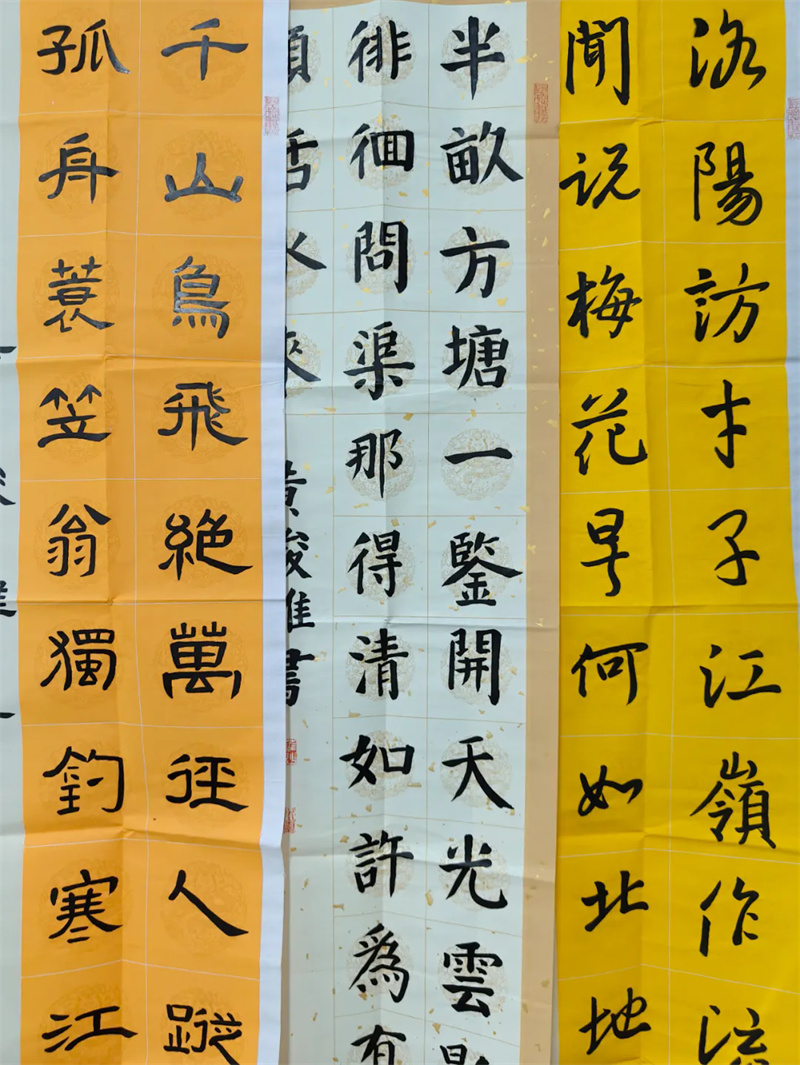 洛陽訪才子江嶺作流
聞说梅花早何如北地
半畝方塘一鑒開天光雲影
徘徊問渠那得清如許為有
頭活水來
黄書
千山鳥飛絶萬徑人蹤
孤舟蓑笠翁獨釣寒江